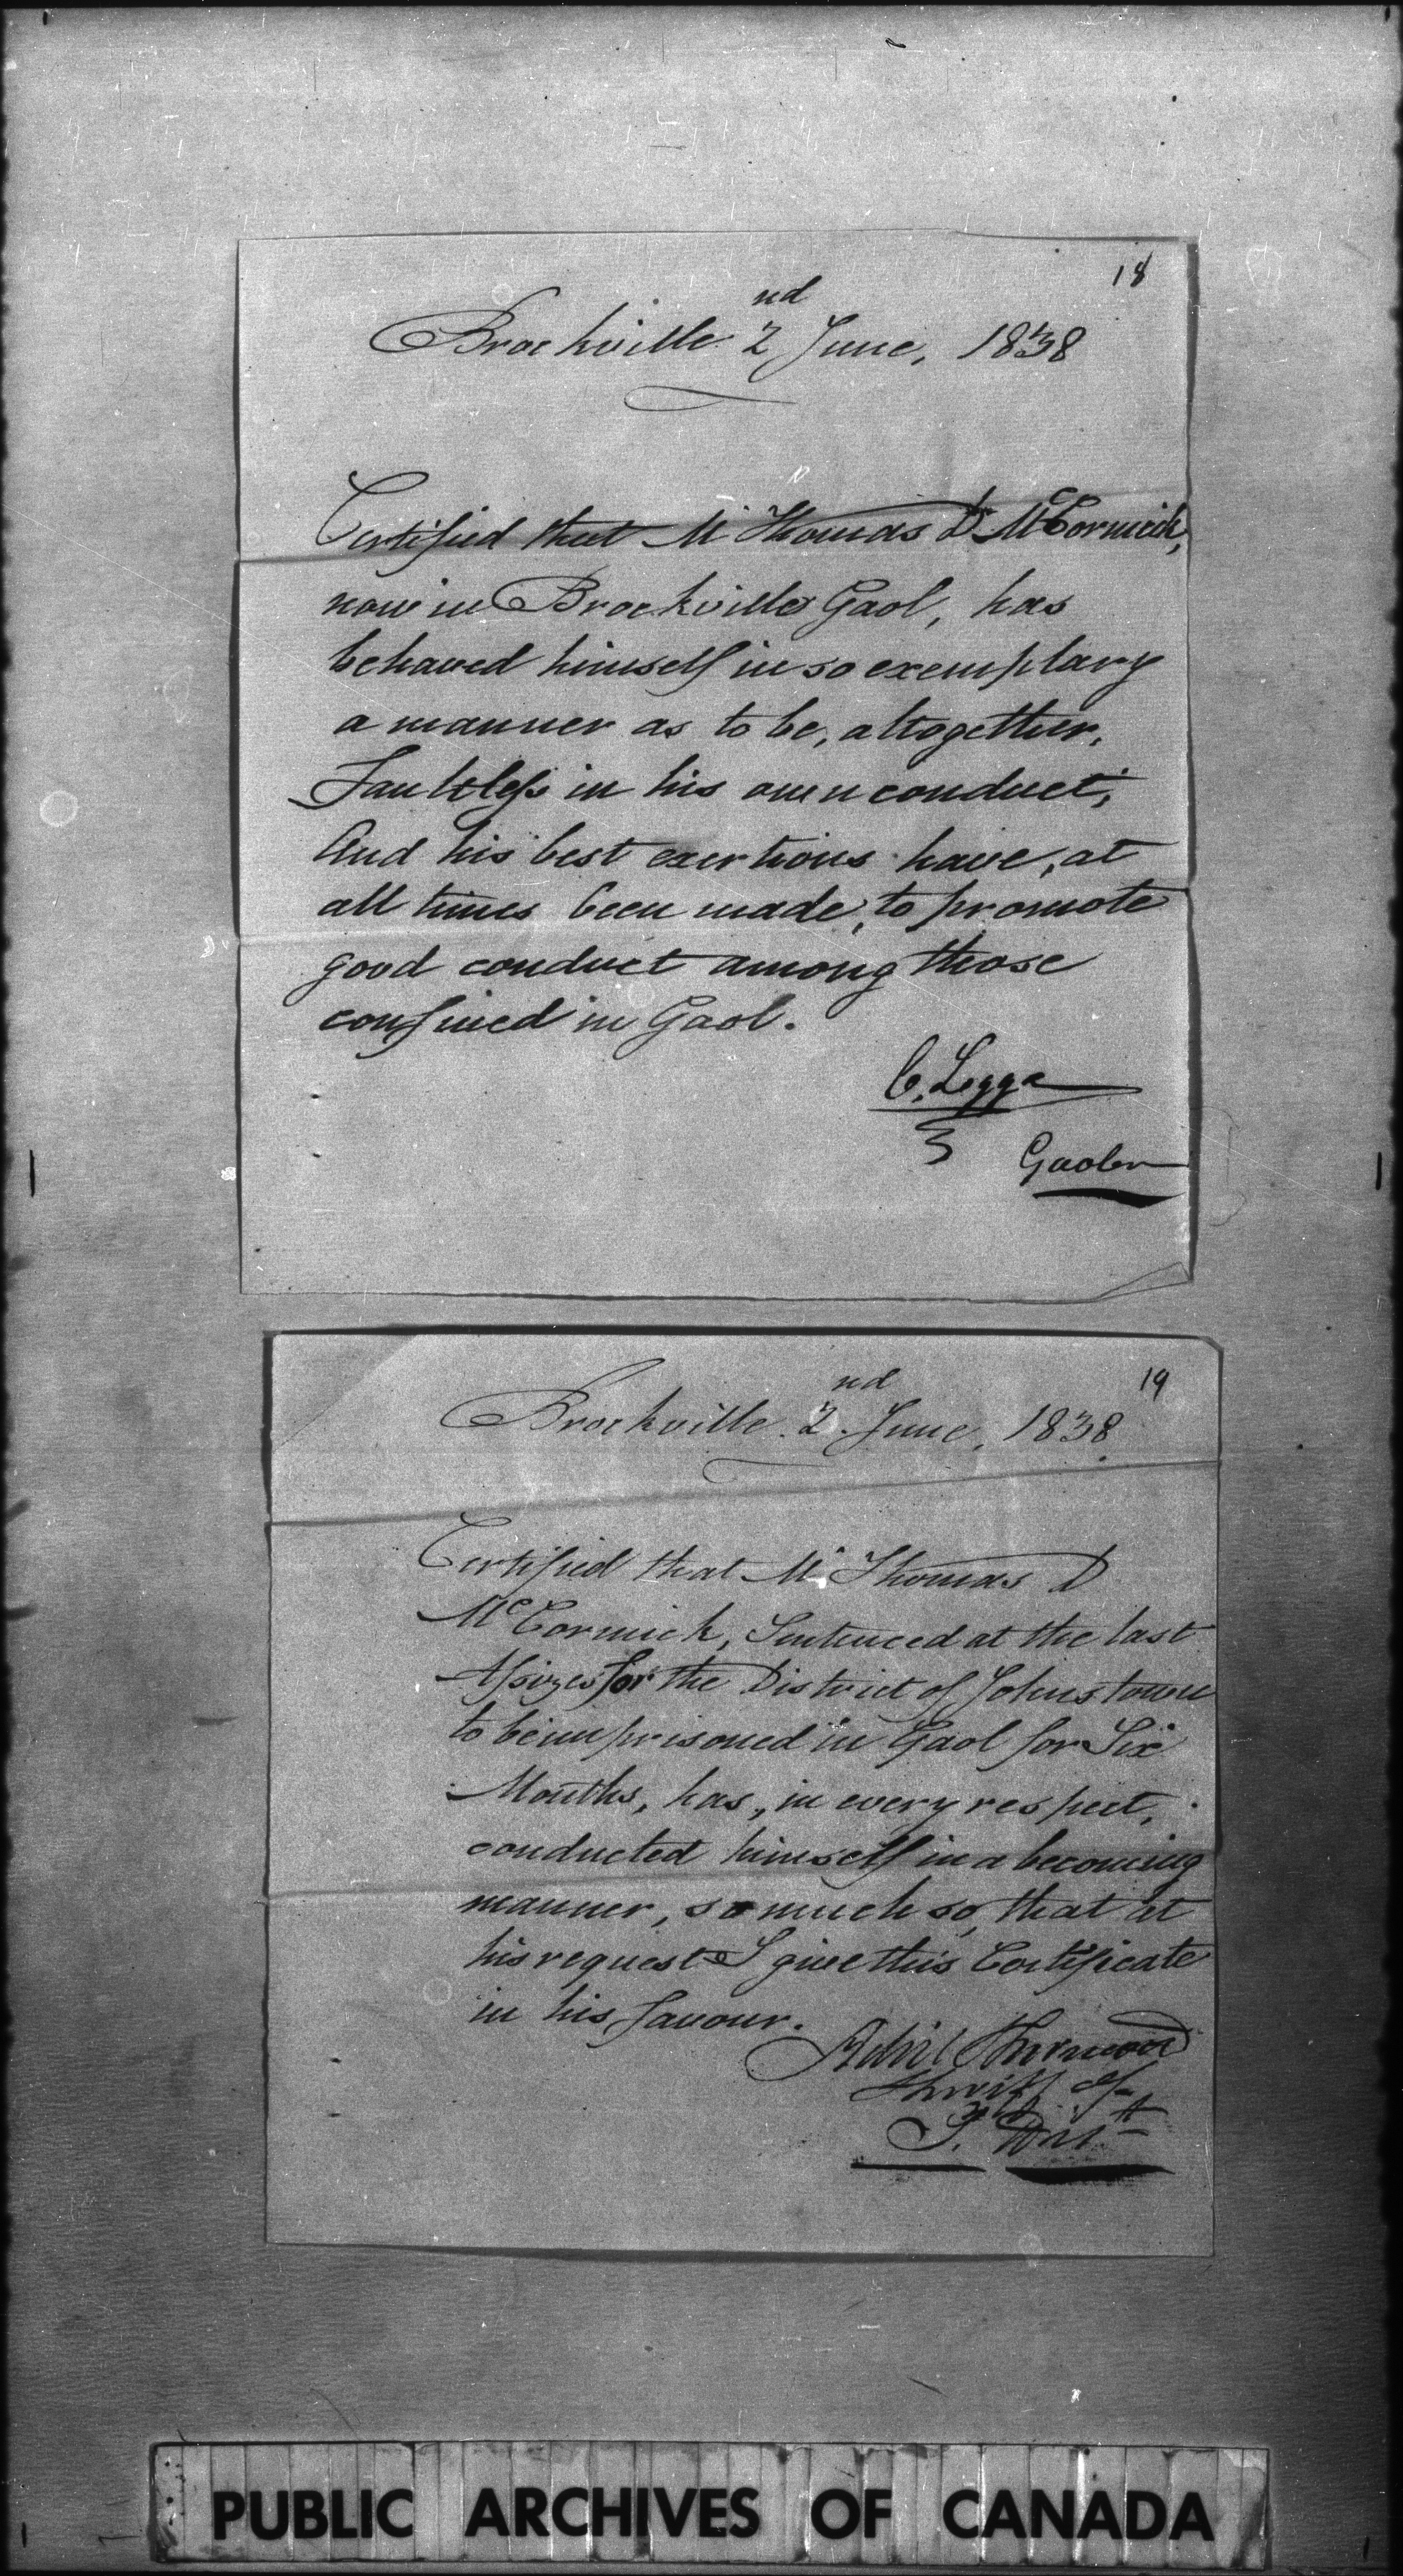 18
Brockville 2nd June, 1838
Certified that Mr Thomas D. McCormick,
now in Brockville Gaol, has
behaved himself in so exemplary
a manner as to be, altogether,
Faultless in his own conduct;
And his best exertions have, at
all times been made, to promote
good conduct among those
confined in Gaol.
C. Legge
Gaoler
19
Brockville. 2nd. June, 1838
Certified that Mr Thomas D
McCormick, Sentenced at the last
Assizes for the District of Johnstown
to be imprisoned in Gaol for Six
Months, has, in every respect,
conducted himself in a becoming
manner, so much so, that at
his request I give this Certificate
in his favour.
Adiel Sherwood
Sheriff of
J. Dist
PUBLIC ARCHIVES OF CANADA